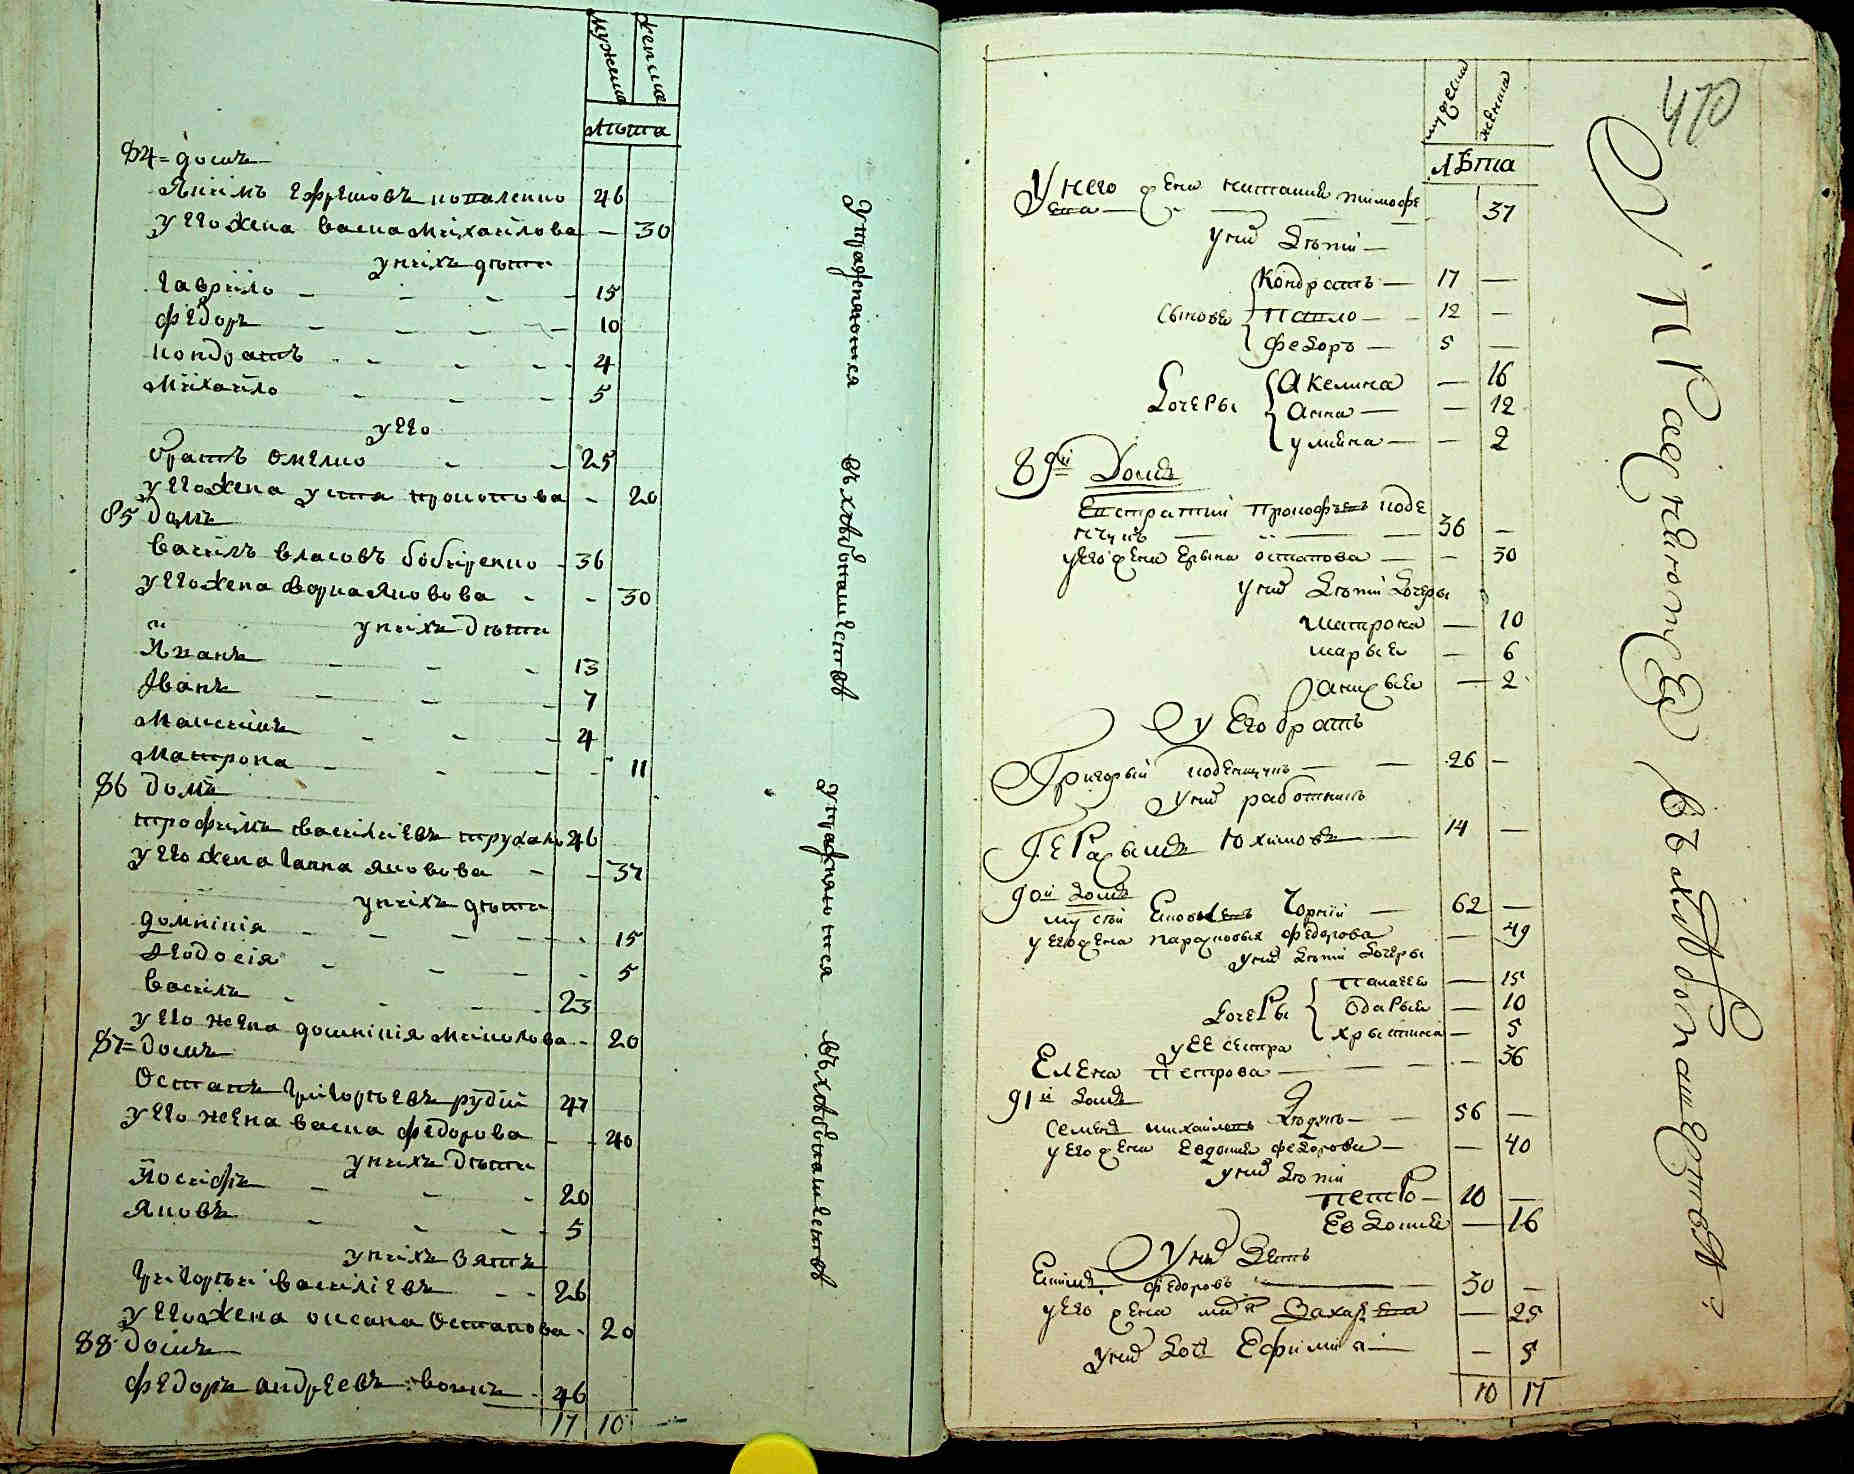 мужеска
женска
лѣта
84= домъ
Якимъ Ефремовъ коваленко 46
у его жена васка михайлова - 30
у нихъ дѣти
гаврило - - - - 15
федоръ - - - - 10
кондратъ - - - - 4
михайло - - - 5
у его
братъ омелко - - 25
у его жена устя прокопова - 20
85 домъ
василь власовъ бобиренко - 36
у его жена федора яковова - - 30
у нихъ дѣти
Иванъ - - - 7
максимъ - - - 4
матрона - - - - 11
86 домъ
трофимъ василиевъ трухан 46
у его жена ганна яковова - - 37
у нихъ дѣти
домникія - - - - - 15
феодосія - - - - 5
василь - - - - 23
у его жена домникія миколова - 20
87= домъ
Остапъ григориевъ рудій 47
у его жена васка федорова - - 40
у нихъ дѣти
Йосифъ - - - 20
Яковъ - - - 5
у нихъ зять
григорій василіевъ - - 26
у его жена оксана остапова - 20
88 домъ
федоръ андреевъ вовкъ - 46
17 10
упражняются въ хлѣбопашествѣ
упражняются въ хлѣбопашествѣ
470
мужеска
женска
лѣта
У него жена тимофе
ева — 37
у них дѣти —
Кондратъ — 17 —
сынове павло — - 12 —
федоръ — 5 —
Акелина — 16
дочеры анна — — 12
улияна — — 2
89й Домъ
Евстратий Прокофьевъ коде
36 —
у его жена ерина остапова — — 30
у них дѣти дочеры
матрона — 10
марья — 6
— 2
у Его братъ
Григорый — — 26 —
у них работникъ
Герасымъ Юхимовъ — 14 —
90й домъ
Чорній — 62 —
у его жена парасковья федорова — 49
у них дѣти дочеры
палагея — 15
дочеры одарья — 10
хрыстина — 5
у ее сестра
Елена Петрова — — — - — 36
91й домъ
Семенъ михайловъ — — 56 —
у его жена Евдокия федорова — — 40
у них дѣти
петро — 10 —
Евдокия — 16
у них зять
Екимъ федоровъ — — 30 —
у его жена Захарева — 25
у них дочь Ефимия — — 5
10 17
Упражняются въ хлѣбопашествѣ